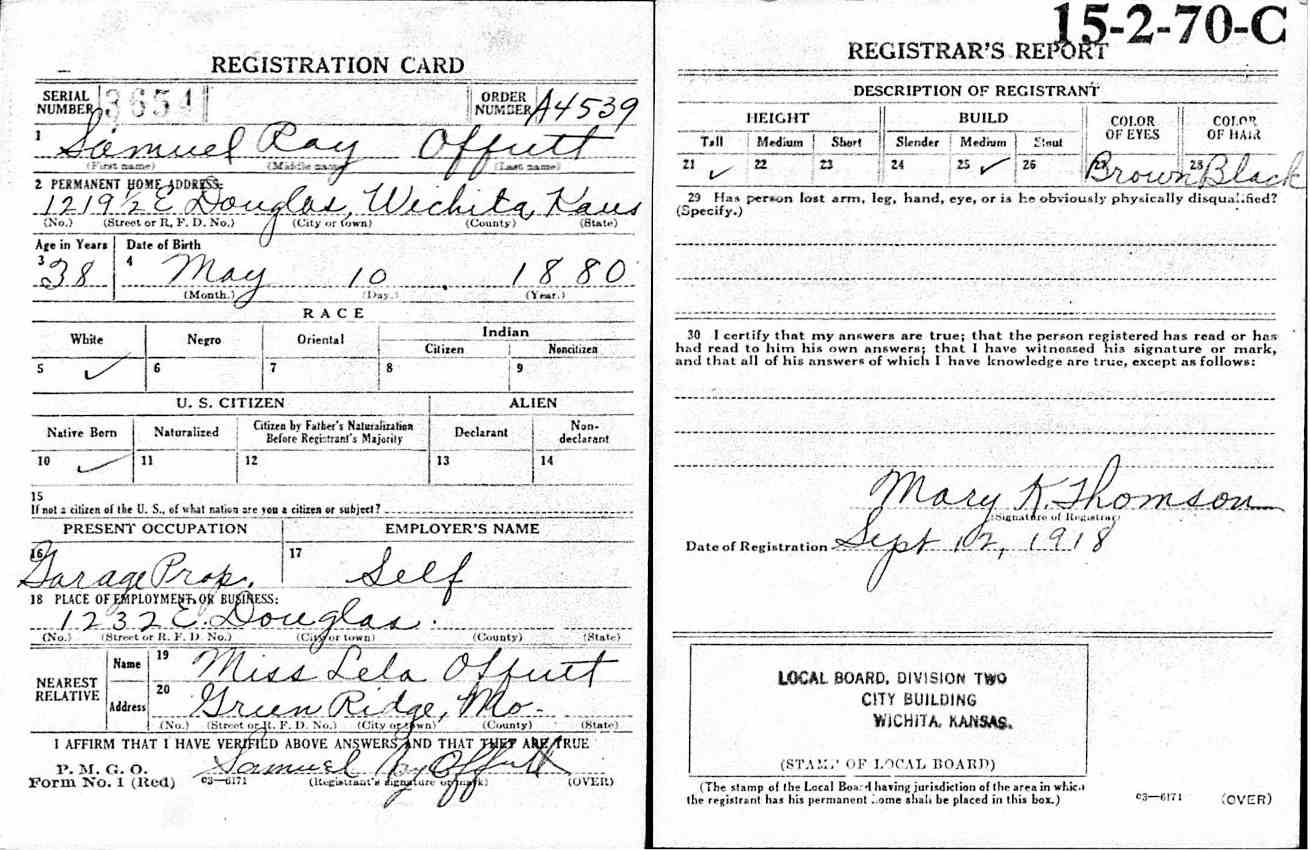 REGISTRATION CARD
SERIAL NUMBER 3654 ORDER NUMBER A4539
1 Samuel Ray Offutt
(First name) (Middle name) (Last name)
2 PERMANENT HOME ADDRESS:
1219 1/2 E Douglas, Wichita, Kans
(No.) (Street or R. F. D. No.) (City or town) (County) (State)
Age in Years Date of Birth
3 38 4 May 10, 1880
(Month.) (Day.) (Year.)
RACE
White Negro Oriental Indian
Citizen Noncitizen
5 ✓ 6 7 8 9
U. S. CITIZEN ALIEN
Native Born Naturalized Citizen by Father's Naturalization Before Registrant's Majority Declarant Non-declarant
10 ✓ 11 12 13 14
15
If not a citizen of the U. S., of what nation are you a citizen or subject?
PRESENT OCCUPATION EMPLOYER'S NAME
16 Garage Prop. 17 Self
18 PLACE OF EMPLOYMENT OR BUSINESS:
1232 E. Douglas.
(No.) (Street or R. F. D. No.) (City or town) (County) (State)
NEAREST RELATIVE Name 19 Miss Lela Offutt
Address 20 Green Ridge, Mo-
(No.) (Street or R. F. D. No.) (City or town) (County) (State)
I AFFIRM THAT I HAVE VERIFIED ABOVE ANSWERS AND THAT THEY ARE TRUE
P. M. G. O.
Form No. 1 (Red) 03—6171 Samuel Ray Offutt
(Registrant's signature or mark) (OVER)
15-2-70-C
REGISTRAR'S REPORT
DESCRIPTION OF REGISTRANT
HEIGHT BUILD COLOR OF EYES COLOR OF HAIR
Tall Medium Short Slender Medium Stout
21 ✓ 22 23 24 25 ✓ 26 27 Brown 28 Black
29 Has person lost arm, leg, hand, eye, or is he obviously physically disqualified?
(Specify.)
30 I certify that my answers are true; that the person registered has read or has
had read to him his own answers; that I have witnessed his signature or mark,
and that all of his answers of which I have knowledge are true, except as follows:
Mary K. Thomson
(Signature of Registrar)
Date of Registration Sept 12, 1918
LOCAL BOARD, DIVISION TWO
CITY BUILDING
WICHITA, KANSAS.
(STAMP OF LOCAL BOARD)
(The stamp of the Local Board having jurisdiction of the area in which
the registrant has his permanent home shall be placed in this box.)
03—6171 (OVER)